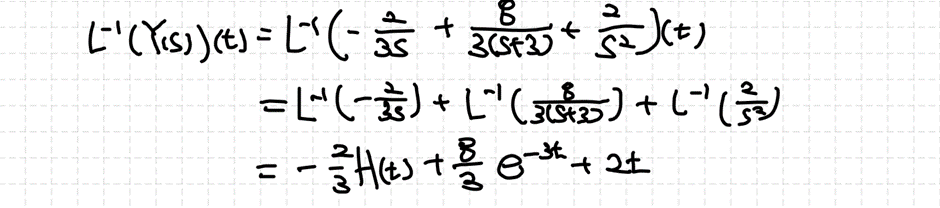 L⁻¹(Y(s))(t) = L⁻¹(-2/(3s) + 8/(3(s+3)) + 2/s²)(t)
= L⁻¹(-2/(3s)) + L⁻¹(8/(3(s+3))) + L⁻¹(2/s²)
= -2/3 H(t) + 8/3 e⁻³ᵗ + 2t